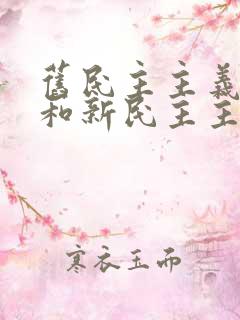 舊民主主義
和新民主主
寒衣玉而